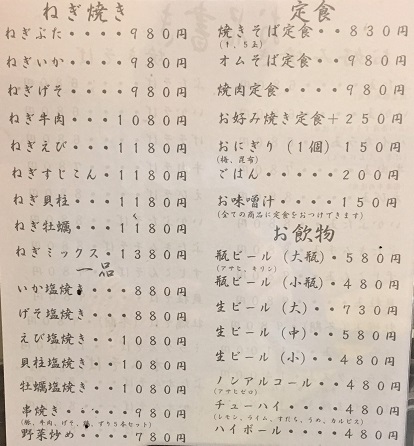 ねぎ焼き
ねぎぶた・・・・980円
ねぎいか・・・・980円
ねぎげそ・・・・980円
ねぎ牛肉・・・1080円
ねぎえび・・・1180円
ねぎすじこん・1180円
ねぎ貝柱・・・1180円
ねぎ牡蠣・・・1180円
ねぎミックス・1380円
一品
いか塩焼き・・880円
げそ塩焼き・・880円
えび塩焼き・1080円
貝柱塩焼き・1080円
牡蠣塩焼き・1080円
串焼き・・・・980円
野菜炒め・・・780円
定食
焼きそば定食・・830円
(1.5玉)
オムそば定食・・980円
焼肉定食・・・・980円
お好み焼き定食+250円
おにぎり(1個)150円
(梅、昆布)
ごはん・・・・・200円
お味噌汁・・・・150円
(全ての商品に定食をおつけできます)
お飲物
瓶ビール(大瓶)・580円
(アサヒ、キリン)
瓶ビール(小瓶)・480円
生ビール(大)・・730円
生ビール(中)・・580円
生ビール(小)・・480円
ノンアルコール・・480円
(アサヒゼロ)
チューハイ・・・・480円
(レモン、ライム、すだち、うめ、カルピス)
ハイボール・・・・480円